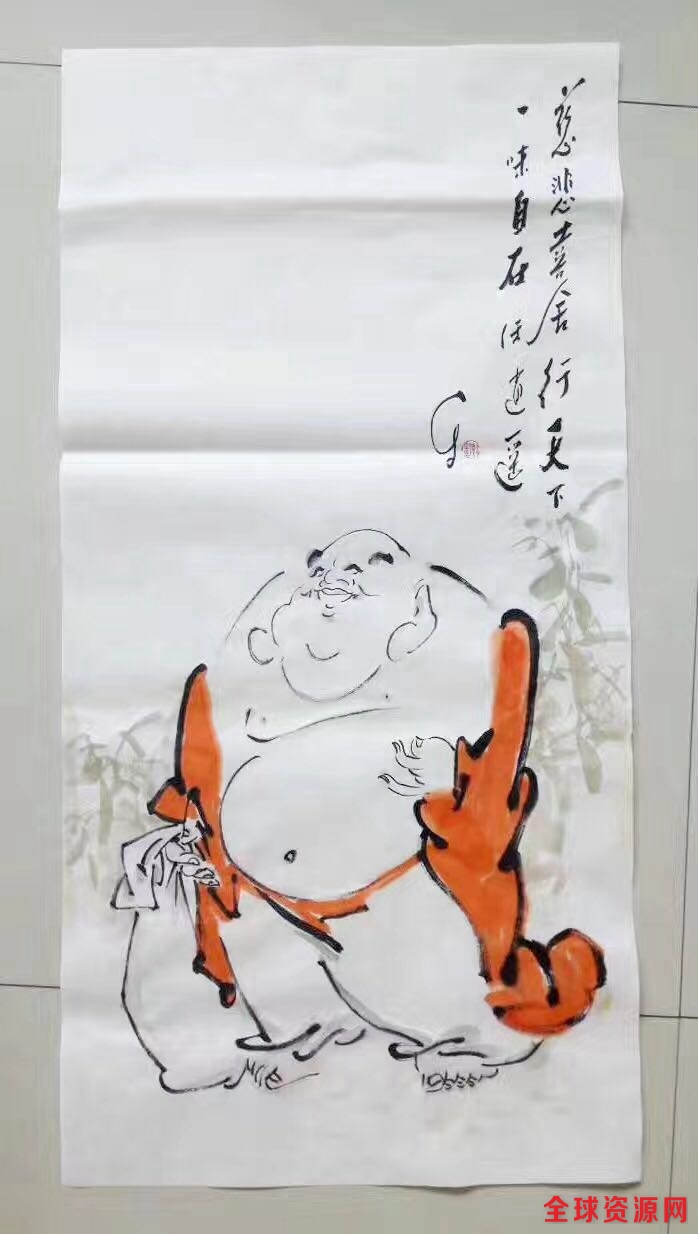 慈悲喜舍行天下
一味自在任逍遥
全球资源网